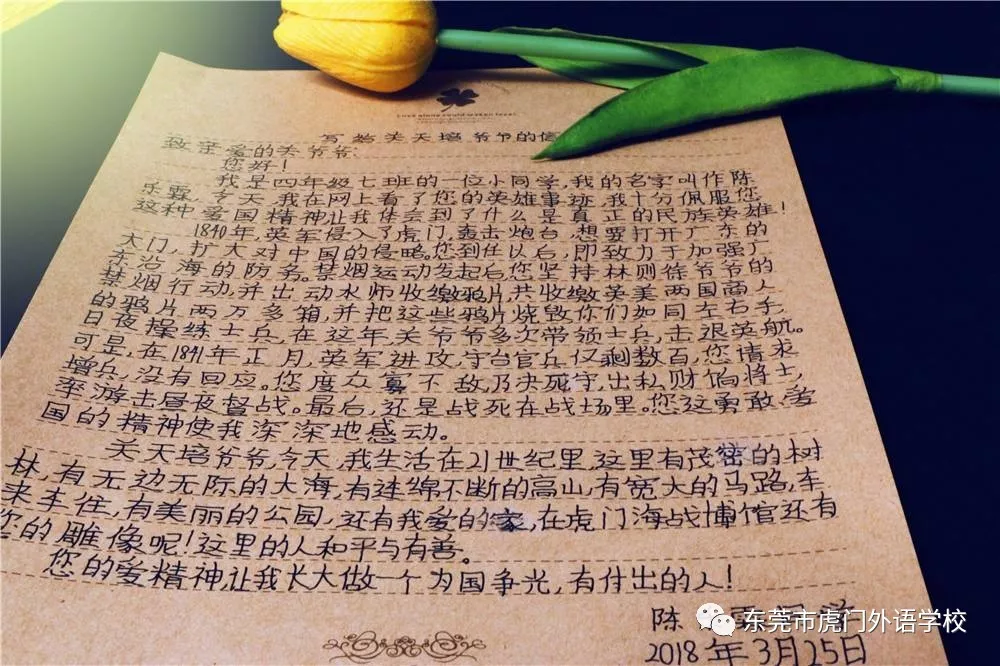 写给关天培爷爷的信
致亲爱的关爷爷:
您好!
我是四年级七班的一位小同学,我的名字叫作陈
乐霖,今天,我在网上看了您的英雄事迹,我十分佩服您
这种爱国精神让我体会到了什么是真正的民族英雄!
1840年,英军侵入了虎门,轰击炮台,想要打开广东的
大门,扩大对中国的侵略。您到任以后,即致力于加强广
东沿海的防务。禁烟运动发起后您坚持林则徐爷爷的
禁烟行动,并出动水师收缴鸦片,共收缴英美两国商人
的鸦片两万多箱,并把这些鸦片烧毁你们如同左右手,
日夜操练士兵,在这年关爷爷多次带领士兵,击退英航。
可是,在1841年正月,英军进攻,守台官兵仅剩数百,您请求
增兵,没有回应。您度众寡不敌,乃决死守,出私财饷将士,
率游击昼夜督战。最后,还是战死在战场里。您这勇敢、爱
国的精神使我深深地感动。
关天培爷爷,今天,我生活在21世纪里,这里有茂密的树
林,有无边无际的大海,有连绵不断的高山,有宽大的马路,车
来车往,有美丽的公园,还有我爱的家,在虎门海战博馆还有
您的雕像呢!这里的人和平与有善。
您的爱精神让我长大做一个为国争光,有付出的人!
陈
2018年3月25日
东莞市虎门外语学校